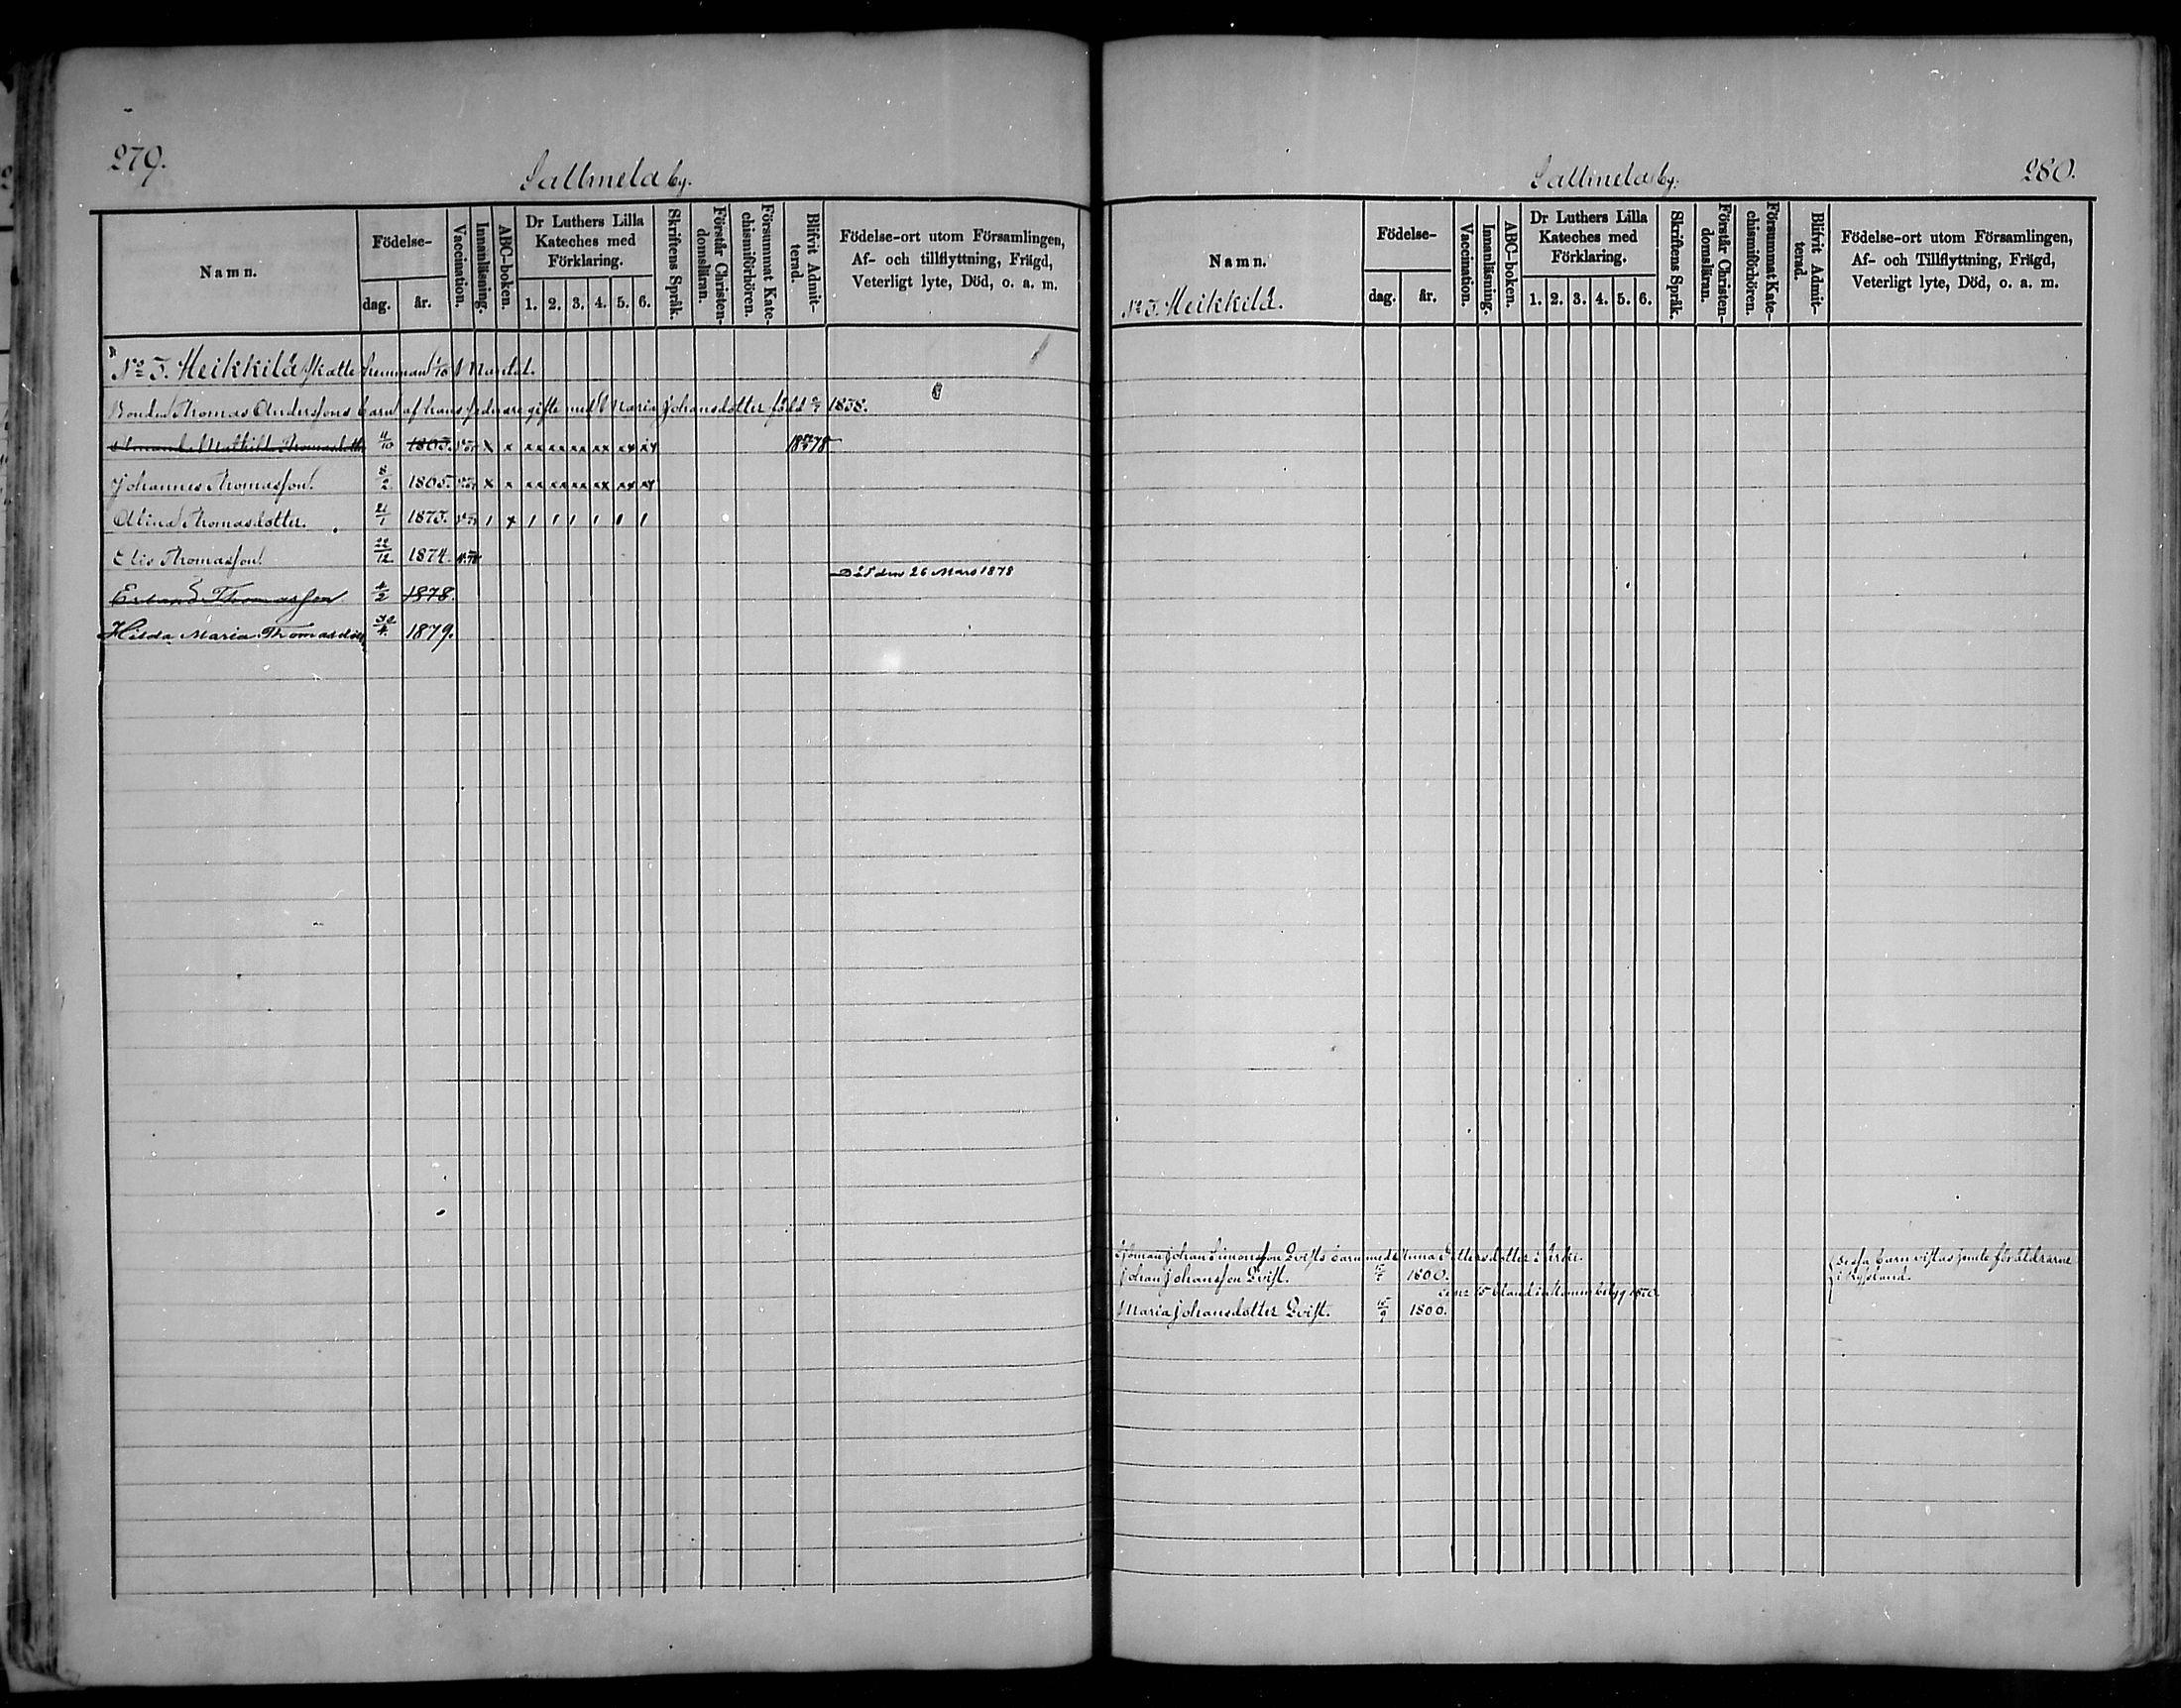 279.
Sallmela by.
Namn.
Födelse-
dag.
år.
Vaccination.
Innanläsning.
ABC-boken.
Dr Luthers Lilla
Kateches med
Förklaring.
1. 2. 3. 4. 5. 6.
Skriftens Språk.
Förstår Christen-
domsläran.
Försummat Kate-
chismiförhören.
Blifvit Admit-
terad.
Födelse-ort utom Församlingen,
Af- och tillflyttning, Frägd,
Veterligt lyte, Död, o. a. m.
Heikkilä Skatte hemman
Bonden Thomas Anderssons barn af hans sednare gifte med Maria Johansdotter född 1838.
Mathilda Thomasdotter x x xx xx xx xx xx xx 18 78
Johannes Thomasson. 8/2 1865. x x xx xx xx xx xx xx
Alina Thomasdotter. 21/1 1873.
Elis Thomasson. 22/12 1874.
Död den 26 Mars 1878
Erland Thomasson 1878.
Hilda Maria Thomasdotter 1879.
Sallmela by.
280.
Namn.
Heikkilä.
Födelse-
dag.
år.
Vaccination.
Innanläsning.
ABC-boken.
Dr Luthers Lilla
Kateches med
Förklaring.
1. 2. 3. 4. 5. 6.
Skriftens Språk.
Förstår Christen-
domsläran.
Försummat Kate-
chismiförhören.
Blifvit Admit-
terad.
Födelse-ort utom Församlingen,
Af- och Tillflyttning, Frägd,
Veterligt lyte, Död, o. a. m.
Sjöman Johan Simonsson Qvists barn med Anna
Dessa barn vistas jemte föräldrarne
Johan Johansson Qvist.
i Ryssland.
Maria Johansdotter Qvist.